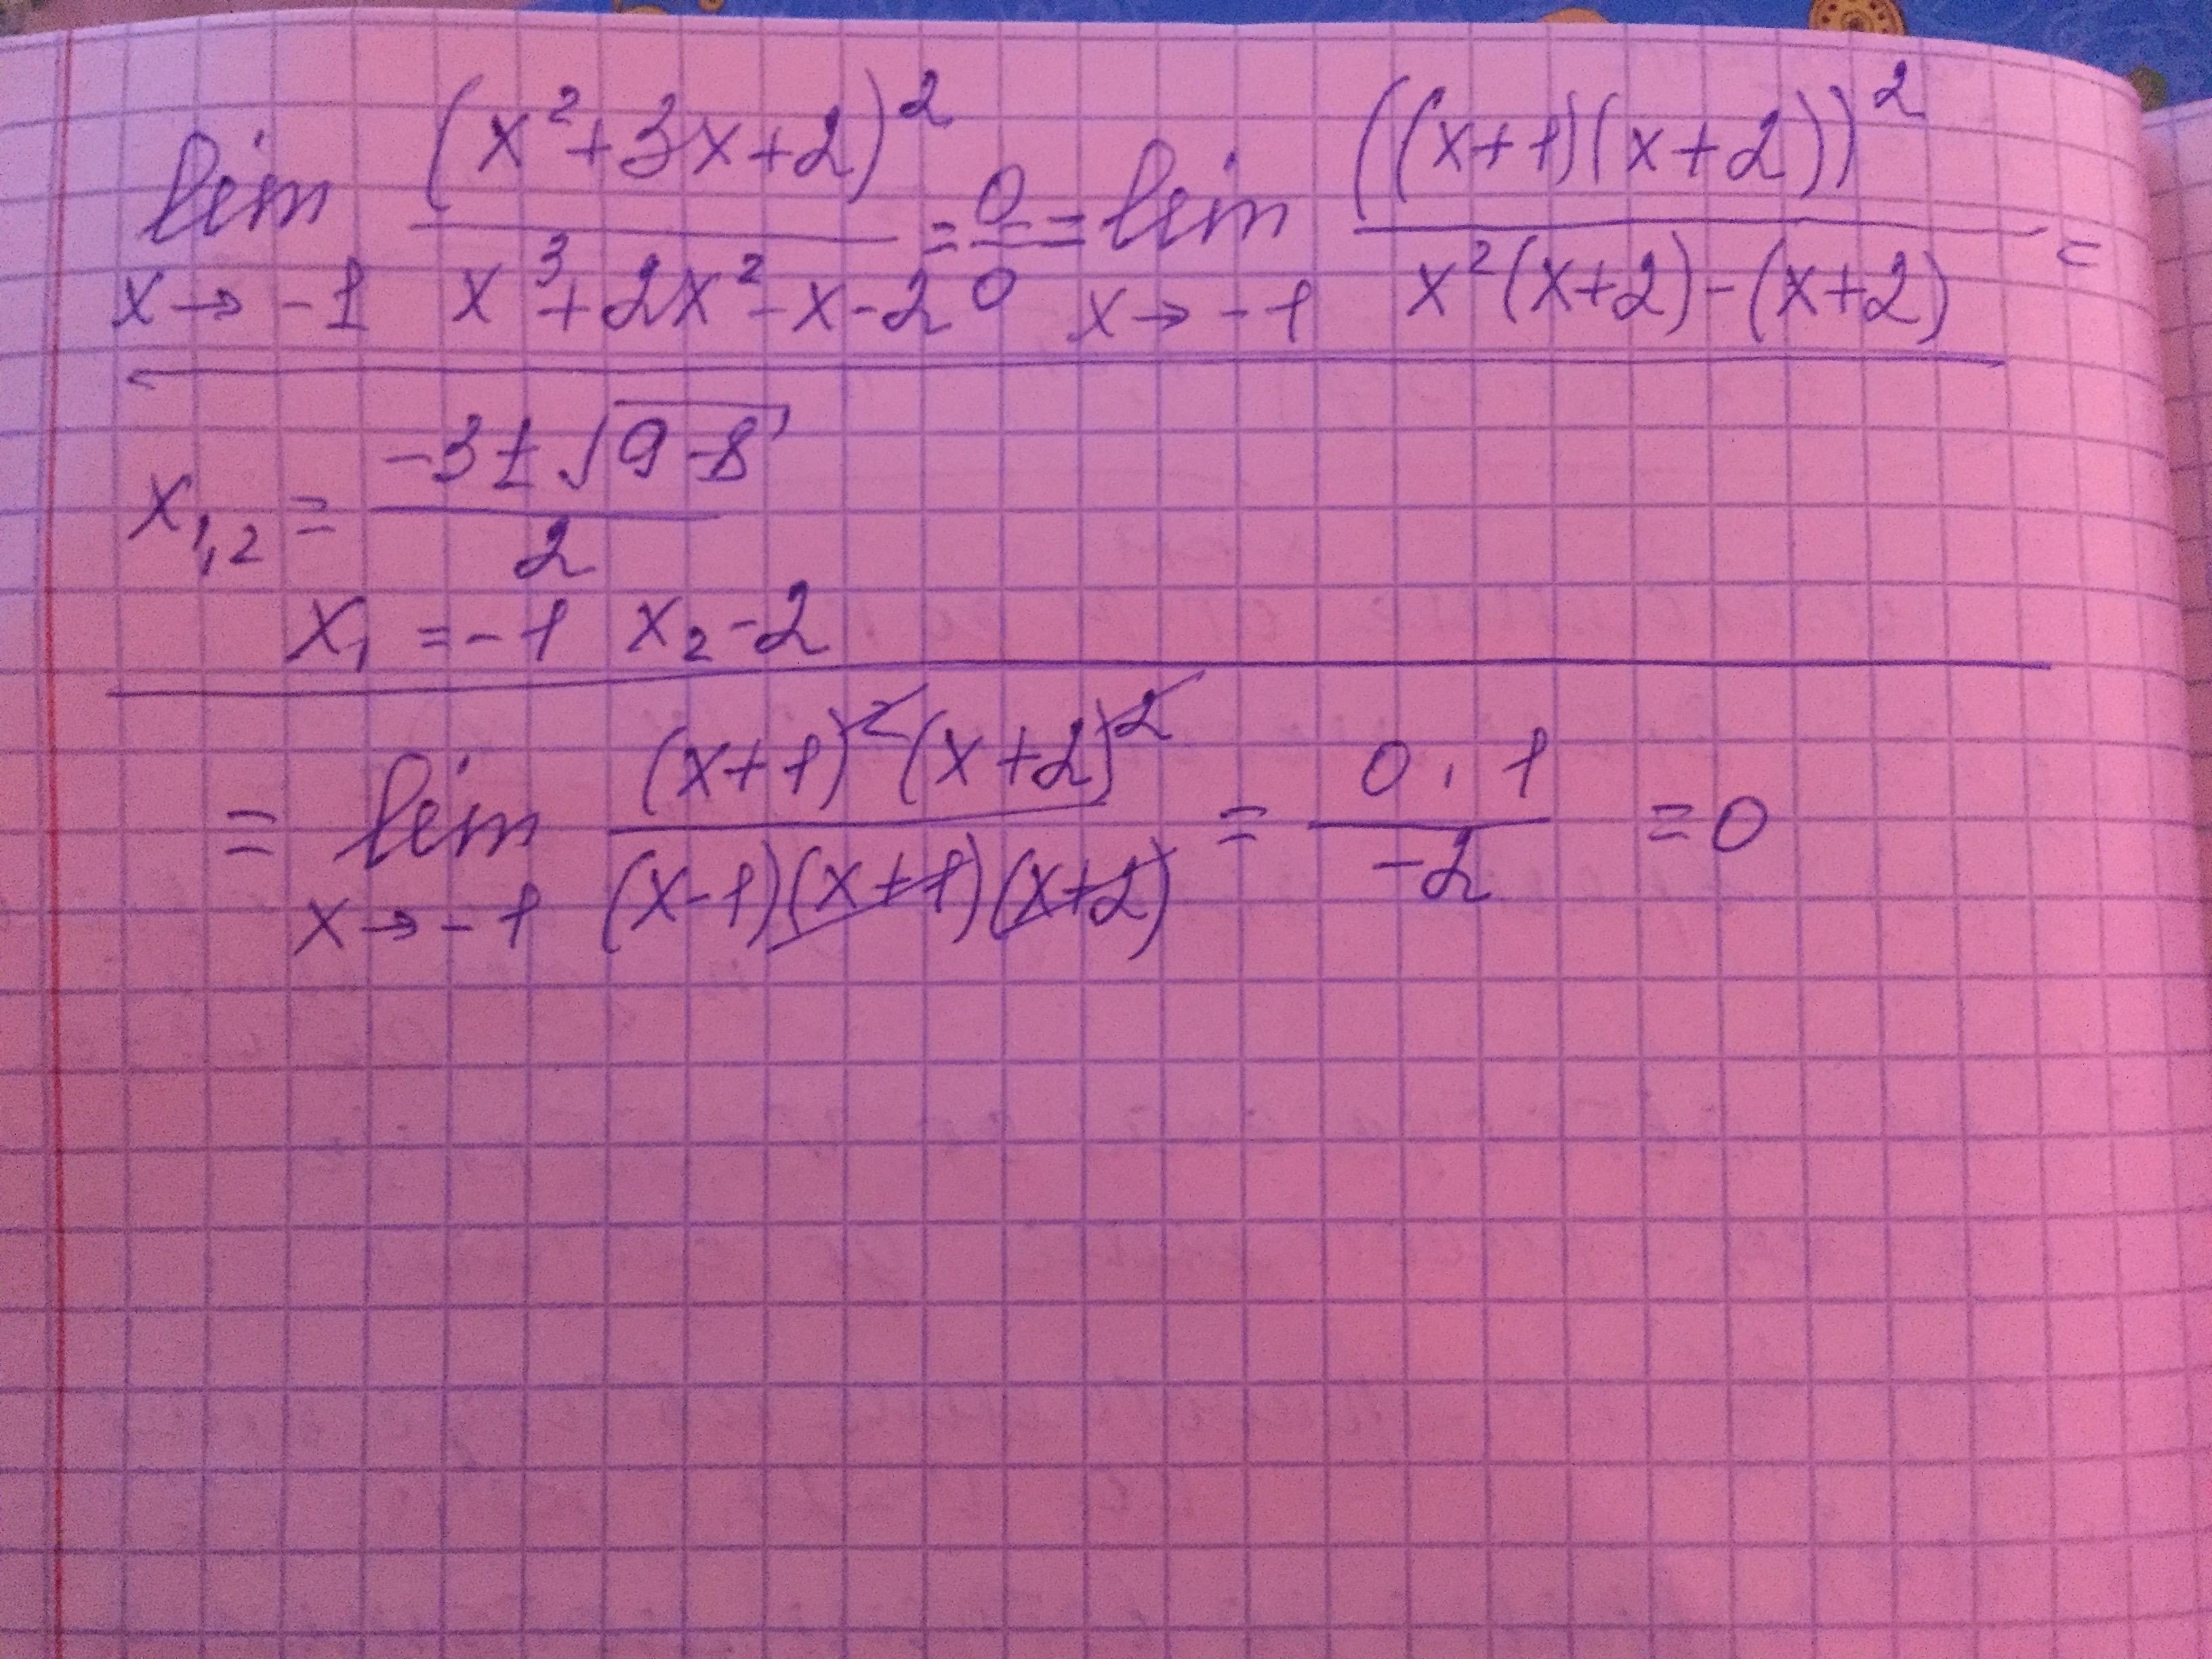 lim x→-1 (x²+3x+2)² / (x³+2x²-x-2) = 0/0 = lim x→-1 ((x+1)(x+2))² / (x²(x+2)-(x+2)) =
x₁,₂ = (-3±√(9-8)) / 2
x₁ =-1 x₂-2
= lim x→-1 (x+1)²(x+2)² / ((x-1)(x+1)(x+2)) = 0·1 / -2 =0